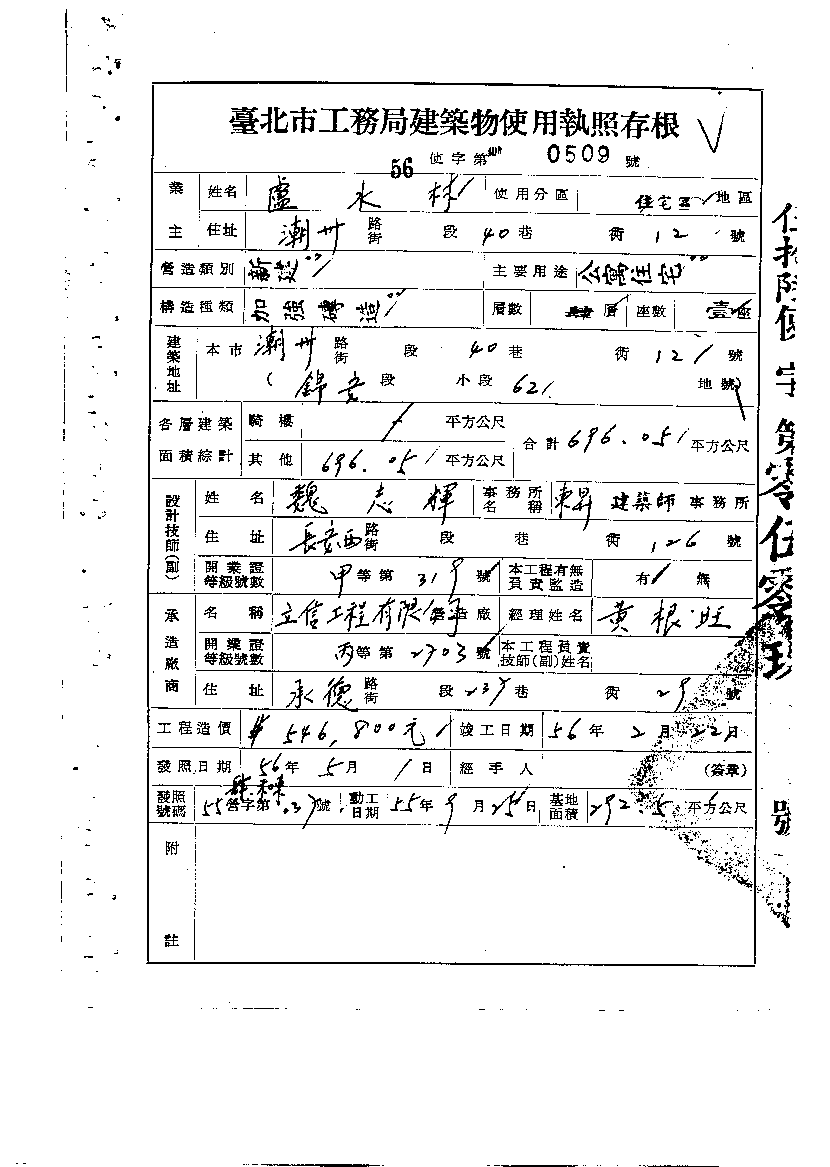 臺北市工務局建築物使用執照存根
56 使字第 0509 號
業主 姓名 盧水林 使用分區 住宅區 地區
住址 潮州 路街 段 40 巷 衖 12 號
營造類別 新建 主要用途 公寓住宅
構造種類 加強磚造 層數 肆層 座數 壹座
建築地址 本市 潮州 路街 段 40 巷 衖 12 號
( 錦安 段 小段 621 地號)
各層建築面積綜計 騎樓 / 平方公尺 合計 696.05 平方公尺
其他 696.05 平方公尺
設計技師(副) 姓名 魏志輝 事務所名稱 東昇 建築師 事務所
住址 長安西 路街 段 巷 衖 126 號
開業證等級號數 甲等第 319 號 本工程有無負責監造 有 無
承造廠商 名稱 立信工程有限公司 營造廠 經理姓名 黃根旺
開業證等級號數 丙等第 2703 號 本工程負責技師(副)姓名
住址 承德 路街 段 237 巷 衖 29 號
工程造價 $ 546,800元 竣工日期 56年 2月 22日
發照日期 56年 5月 1日 經手人 (簽章)
發照號碼 55營字第 號 動工日期 55年 9月 25日 基地面積 292.5 平方公尺
附註
伍拾陸使字第零伍零玖號